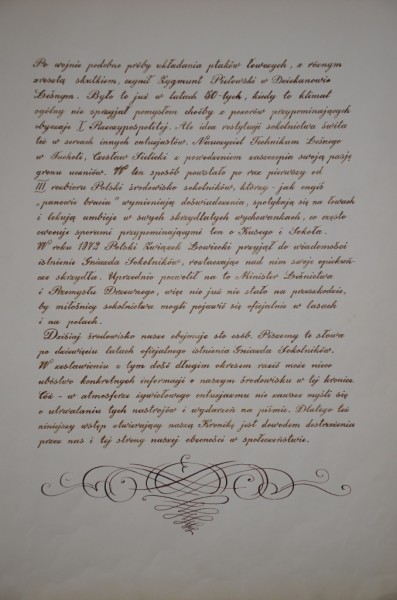 Po wojnie podobne próby układania ptaków łowczych, z różnym
zresztą skutkiem, czynił Zygmunt Pielowski w Dziekanowie
Leśnym. Było to już w latach 50-tych, kiedy to klimat
ogólny nie sprzyjał pomysłom choćby z pozorów przypominających
obyczaje I Rzeczypospolitej. Ale idea restytucji sokolnictwa świtała
też w sercach innych entuzjastów. Nauczyciel Technikum Leśnego
w Tucholi, Czesław Sielicki z powodzeniem zaszczepia swoją pasję
gronu uczniów. W ten sposób powstało po raz pierwszy od
III rozbioru Polski środowisko sokolników, którzy - jak ongiś
„panowie bracia" wymieniają doświadczenia, spotykają się na łowach
i lokują ambicje w swych skrzydlatych wychowankach, co często
owocuje sporami przypominającymi ten o Kusego i Sokoła.
W roku 1972 Polski Związek Łowiecki przyjął do wiadomości
istnienie Gniazda Sokolników, roztaczając nad nim swoje opiekuń-
cze skrzydła. Uprzednio pozwolił na to Minister Leśnictwa
i Przemysłu Drzewnego, więc nic już nie stało na przeszkodzie,
by miłośnicy sokolnictwa mogli pojawić się oficjalnie w lasach
i na polach.
Dzisiaj środowisko nasze obejmuje sto osób. Piszemy te słowa
po dziewięciu latach oficjalnego istnienia Gniazda Sokolników.
W zestawieniu z tym dość długim okresem razić może nieco
ubóstwo konkretnych informacji o naszym środowisku w tej kronice.
Cóż - w atmosferze żywiołowego entuzjazmu nie zawsze myśli się
o utrwalaniu tych nastrojów i wydarzeń na piśmie. Dlatego też
niniejszy wstęp otwierający naszą Kronikę jest dowodem dostrzeżenia
przez nas i tej strony naszej obecności w społeczeństwie.